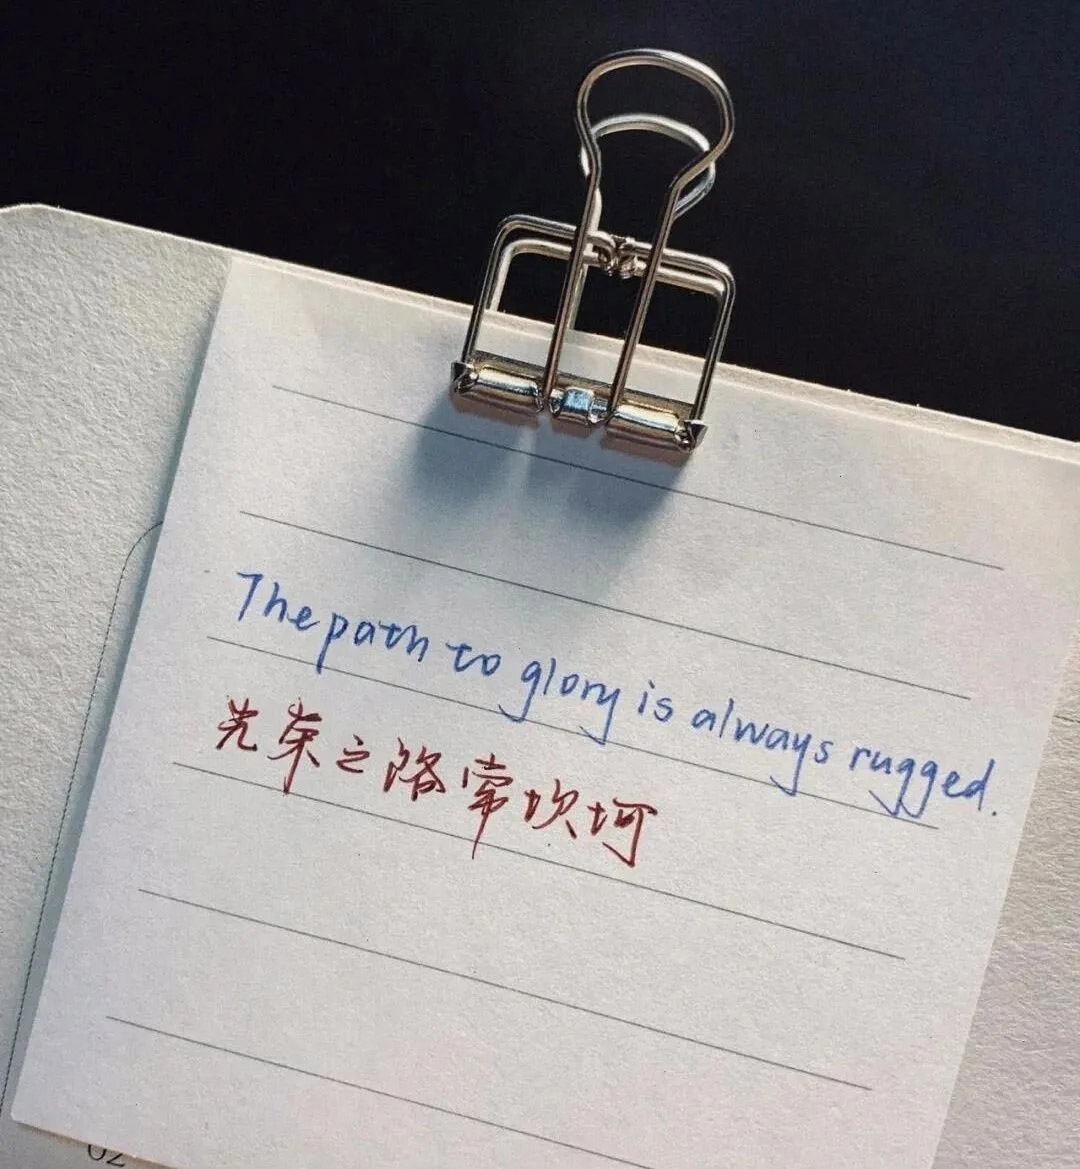 The path to glory is always rugged.
光荣之路常坎坷